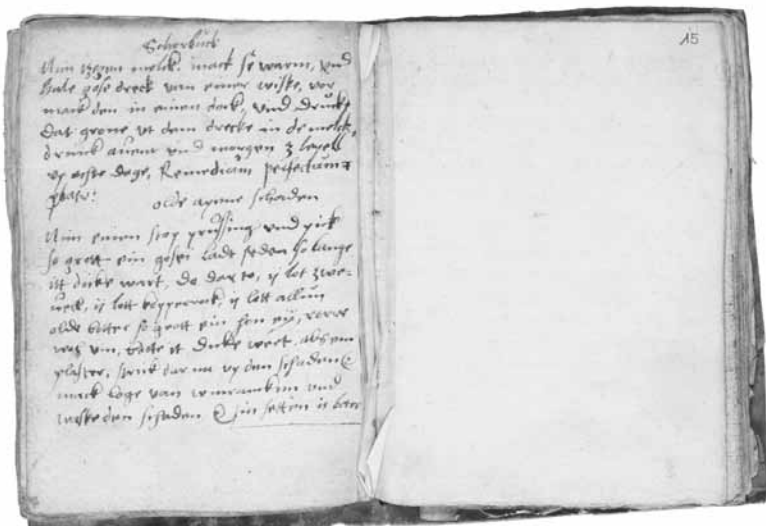 Schorbuck
Nim zegen melck, mack se warm, vnd
hale gose dreck van einer wiske, wor
mack den in einen dock, vnd druck
dat grone vt dem drecke in de melck,
drinck auent vnd morgen 3 lepell
vp achte dage, Remedium perfectum
probatum
olde apene schaden
Nim einen stop prussing vnd pick
so grott ein gosei ladt seden so lange
itt dicke wart, do dar to, ij lot
ij lott kopperrock, ij lott allun
olde botter so grott ein hon eij, rore
vm, dicke wert, als ein
plaster, strick dar na vp den schaden
mack loge van winrancken vnd
waske den schaden
15